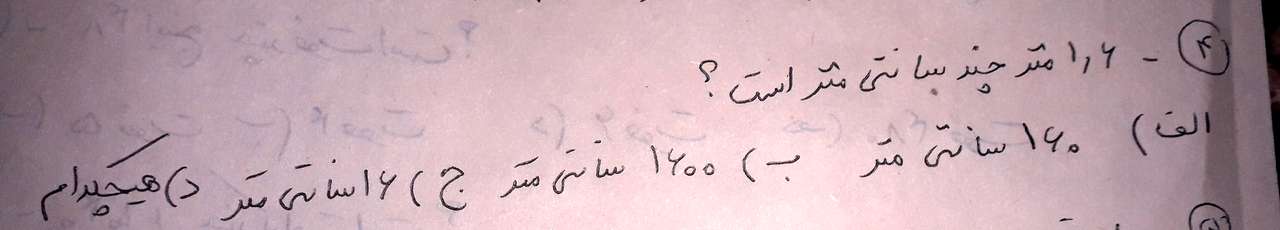 ۴ - ۱,۶ متر چند سانتی متر است؟
الف) ۱۶۰ سانتی متر ب) ۱۶۰۰ سانتی متر ج) ۱۶ سانتی متر د) هیچکدام